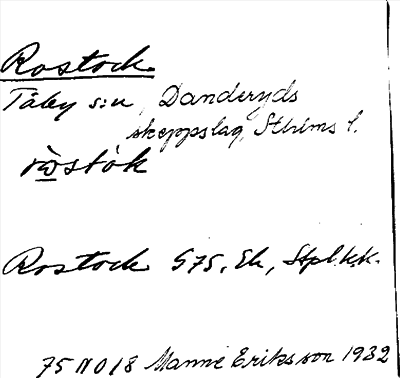 Rostock
Täby s:n, Danderyds
skeppslag, Sthlms l.
Rostock 575, Ek,
75 NO 18 Manne Eriksson 1932